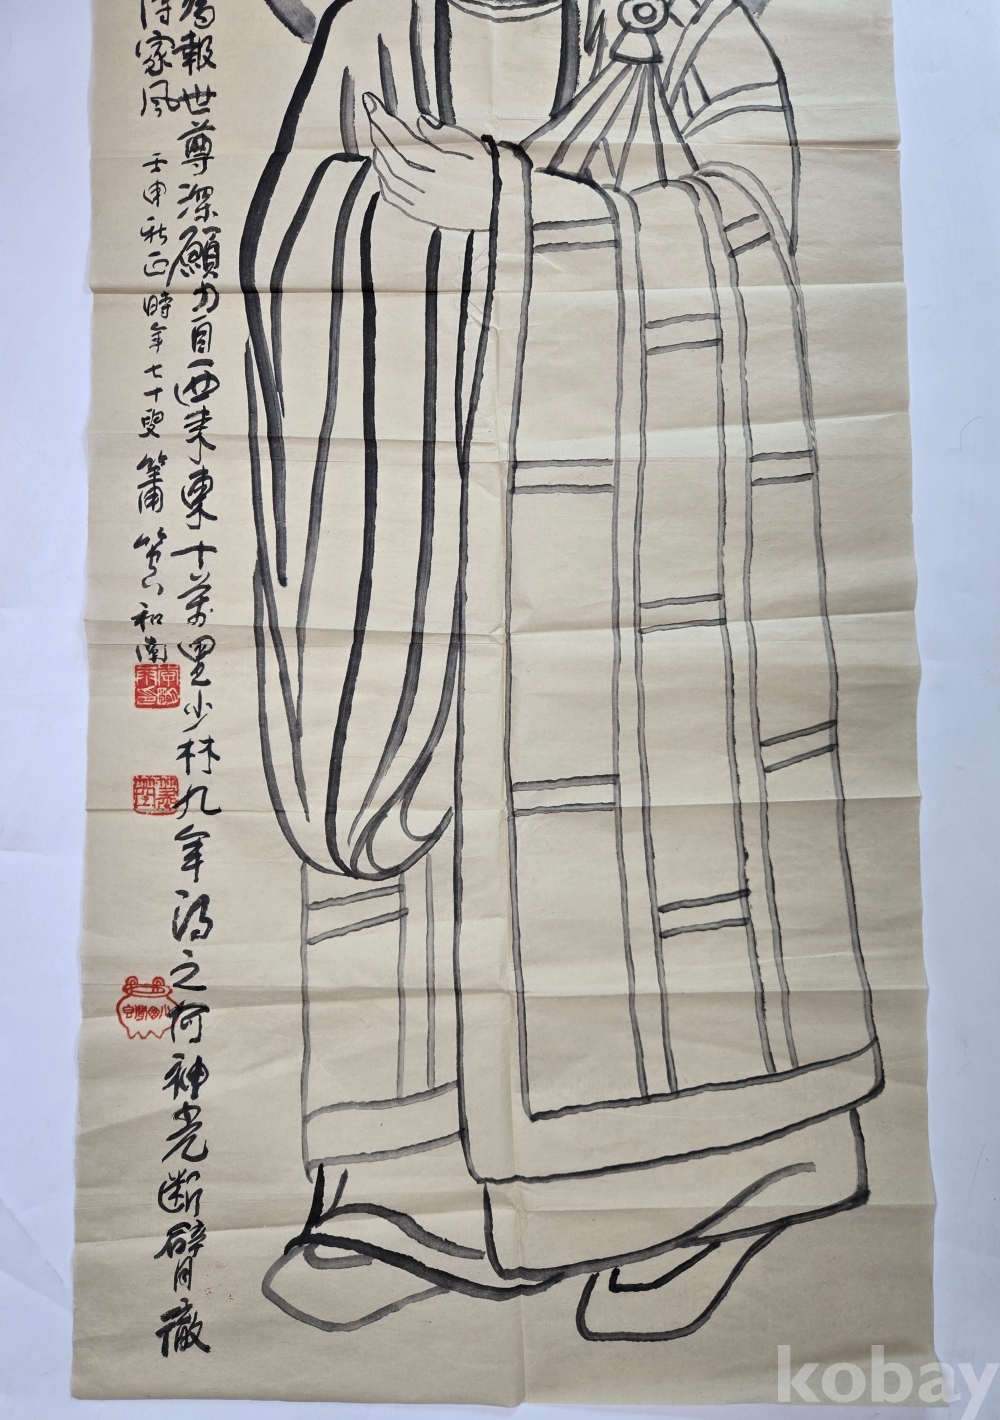 報世尊深願力自西來東十萬里少林九年得之何神光斷臂徹
家風
壬申秋正時年七十叟
和南
kobay